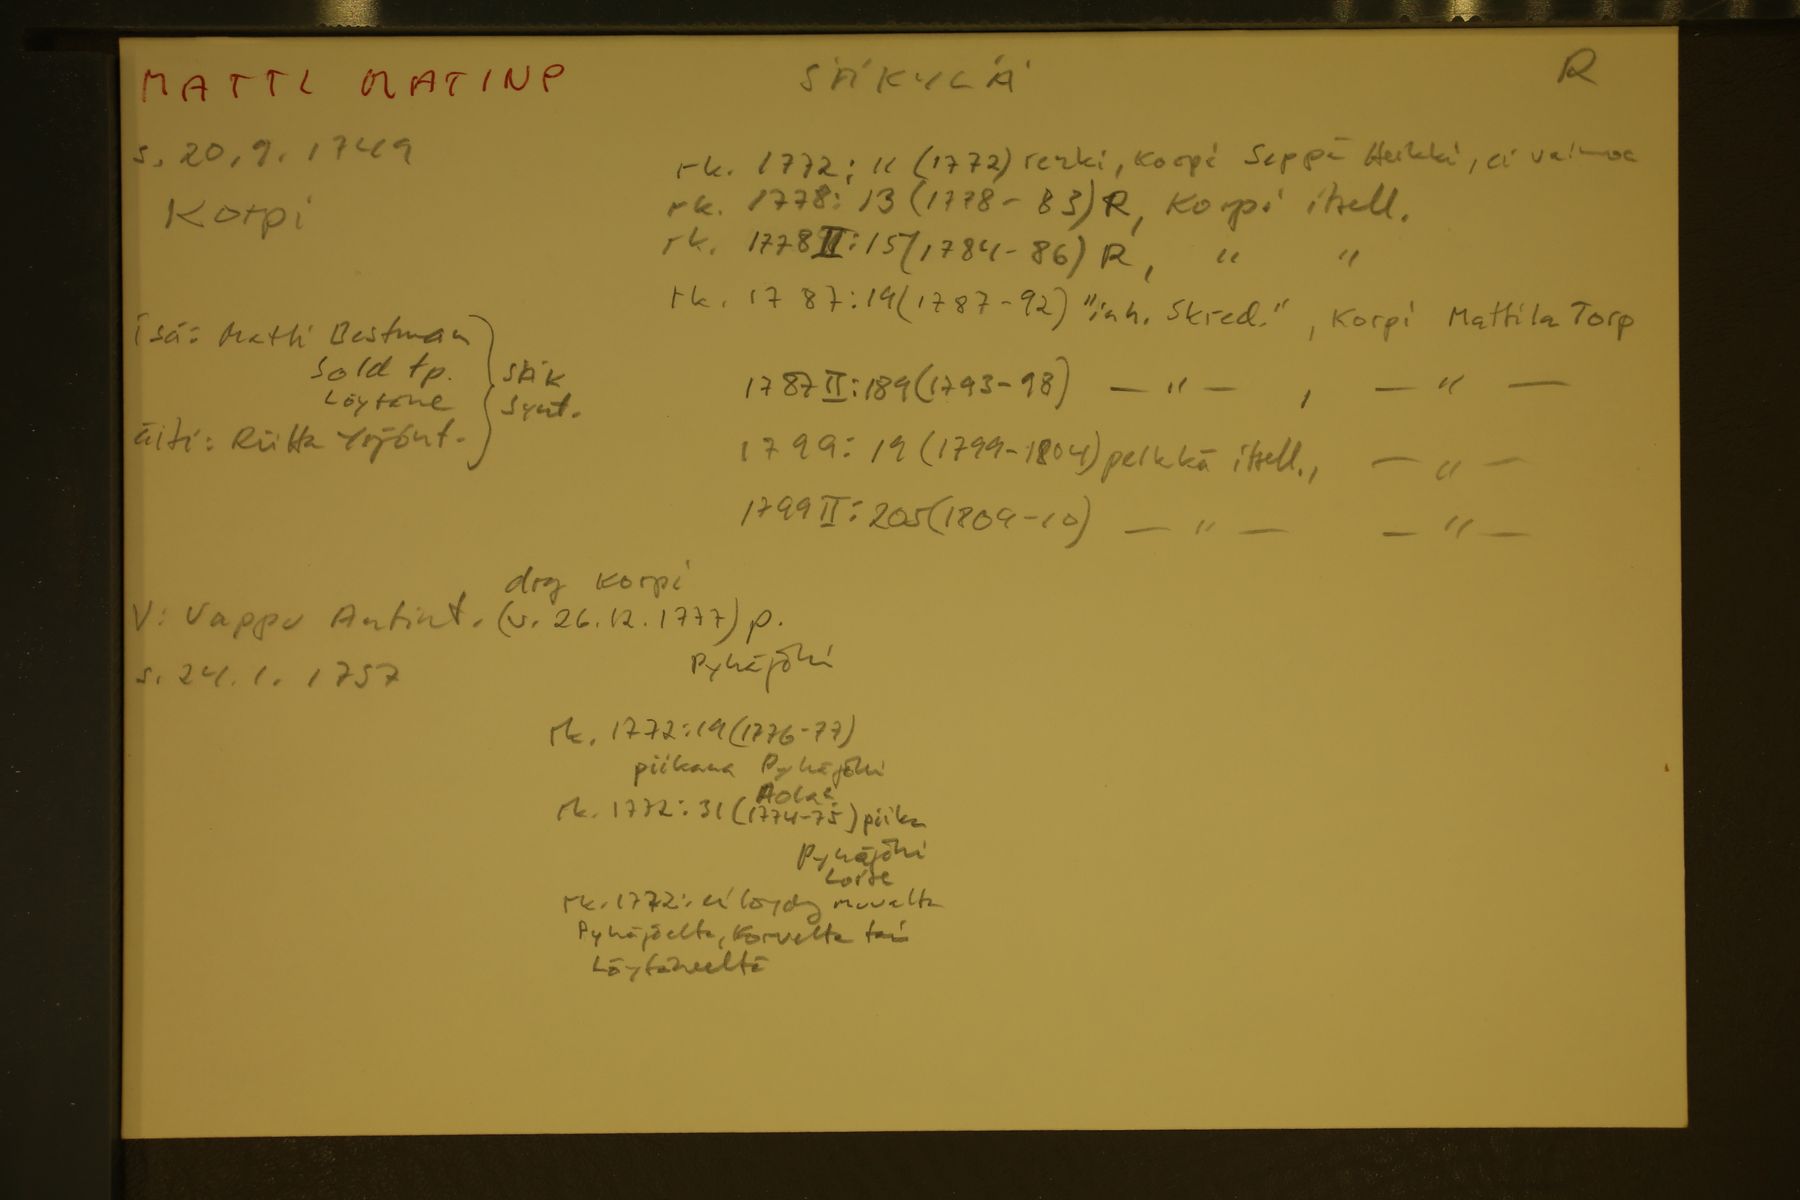 MATTI MATINP SÄKYLÄ R
s. 20.9. 1749
Korpi
rk. 1772: 11 (1772) renki, Korpi Seppä Heikki, ei vaimoa
rk. 1778: 13 (1778-83) R, Korpi itsell.
rk. 1778 II: 15 (1784-86) R, " "
rk. 1787: 19 (1787-92) "inh. Skred.", Korpi Mattila Torp
1787 II: 189 (1793-98) — " — , — " —
1799: 19 (1799-1804) pelkkä itsell., — " —
1799 II: 205 (1809-10) — " — — " —
Isä: Matti Bestman
Sold tp.
Löytäne
äiti: Riitta Yrjönt.
SÄK
synt.
drg Korpi
V: Vappu Antint. (v. 26.12.1777) p.
Pyhäjöki
s. 24.1. 1757
rk. 1772: 19 (1776-77)
piikana Pyhäjöki
rk. 1772: 31 (1774-75) piika
Pyhäjöki
rk. 1772: ei löydy muualta
Pyhäjoelta, Korvelta tai
Löytäneeltä